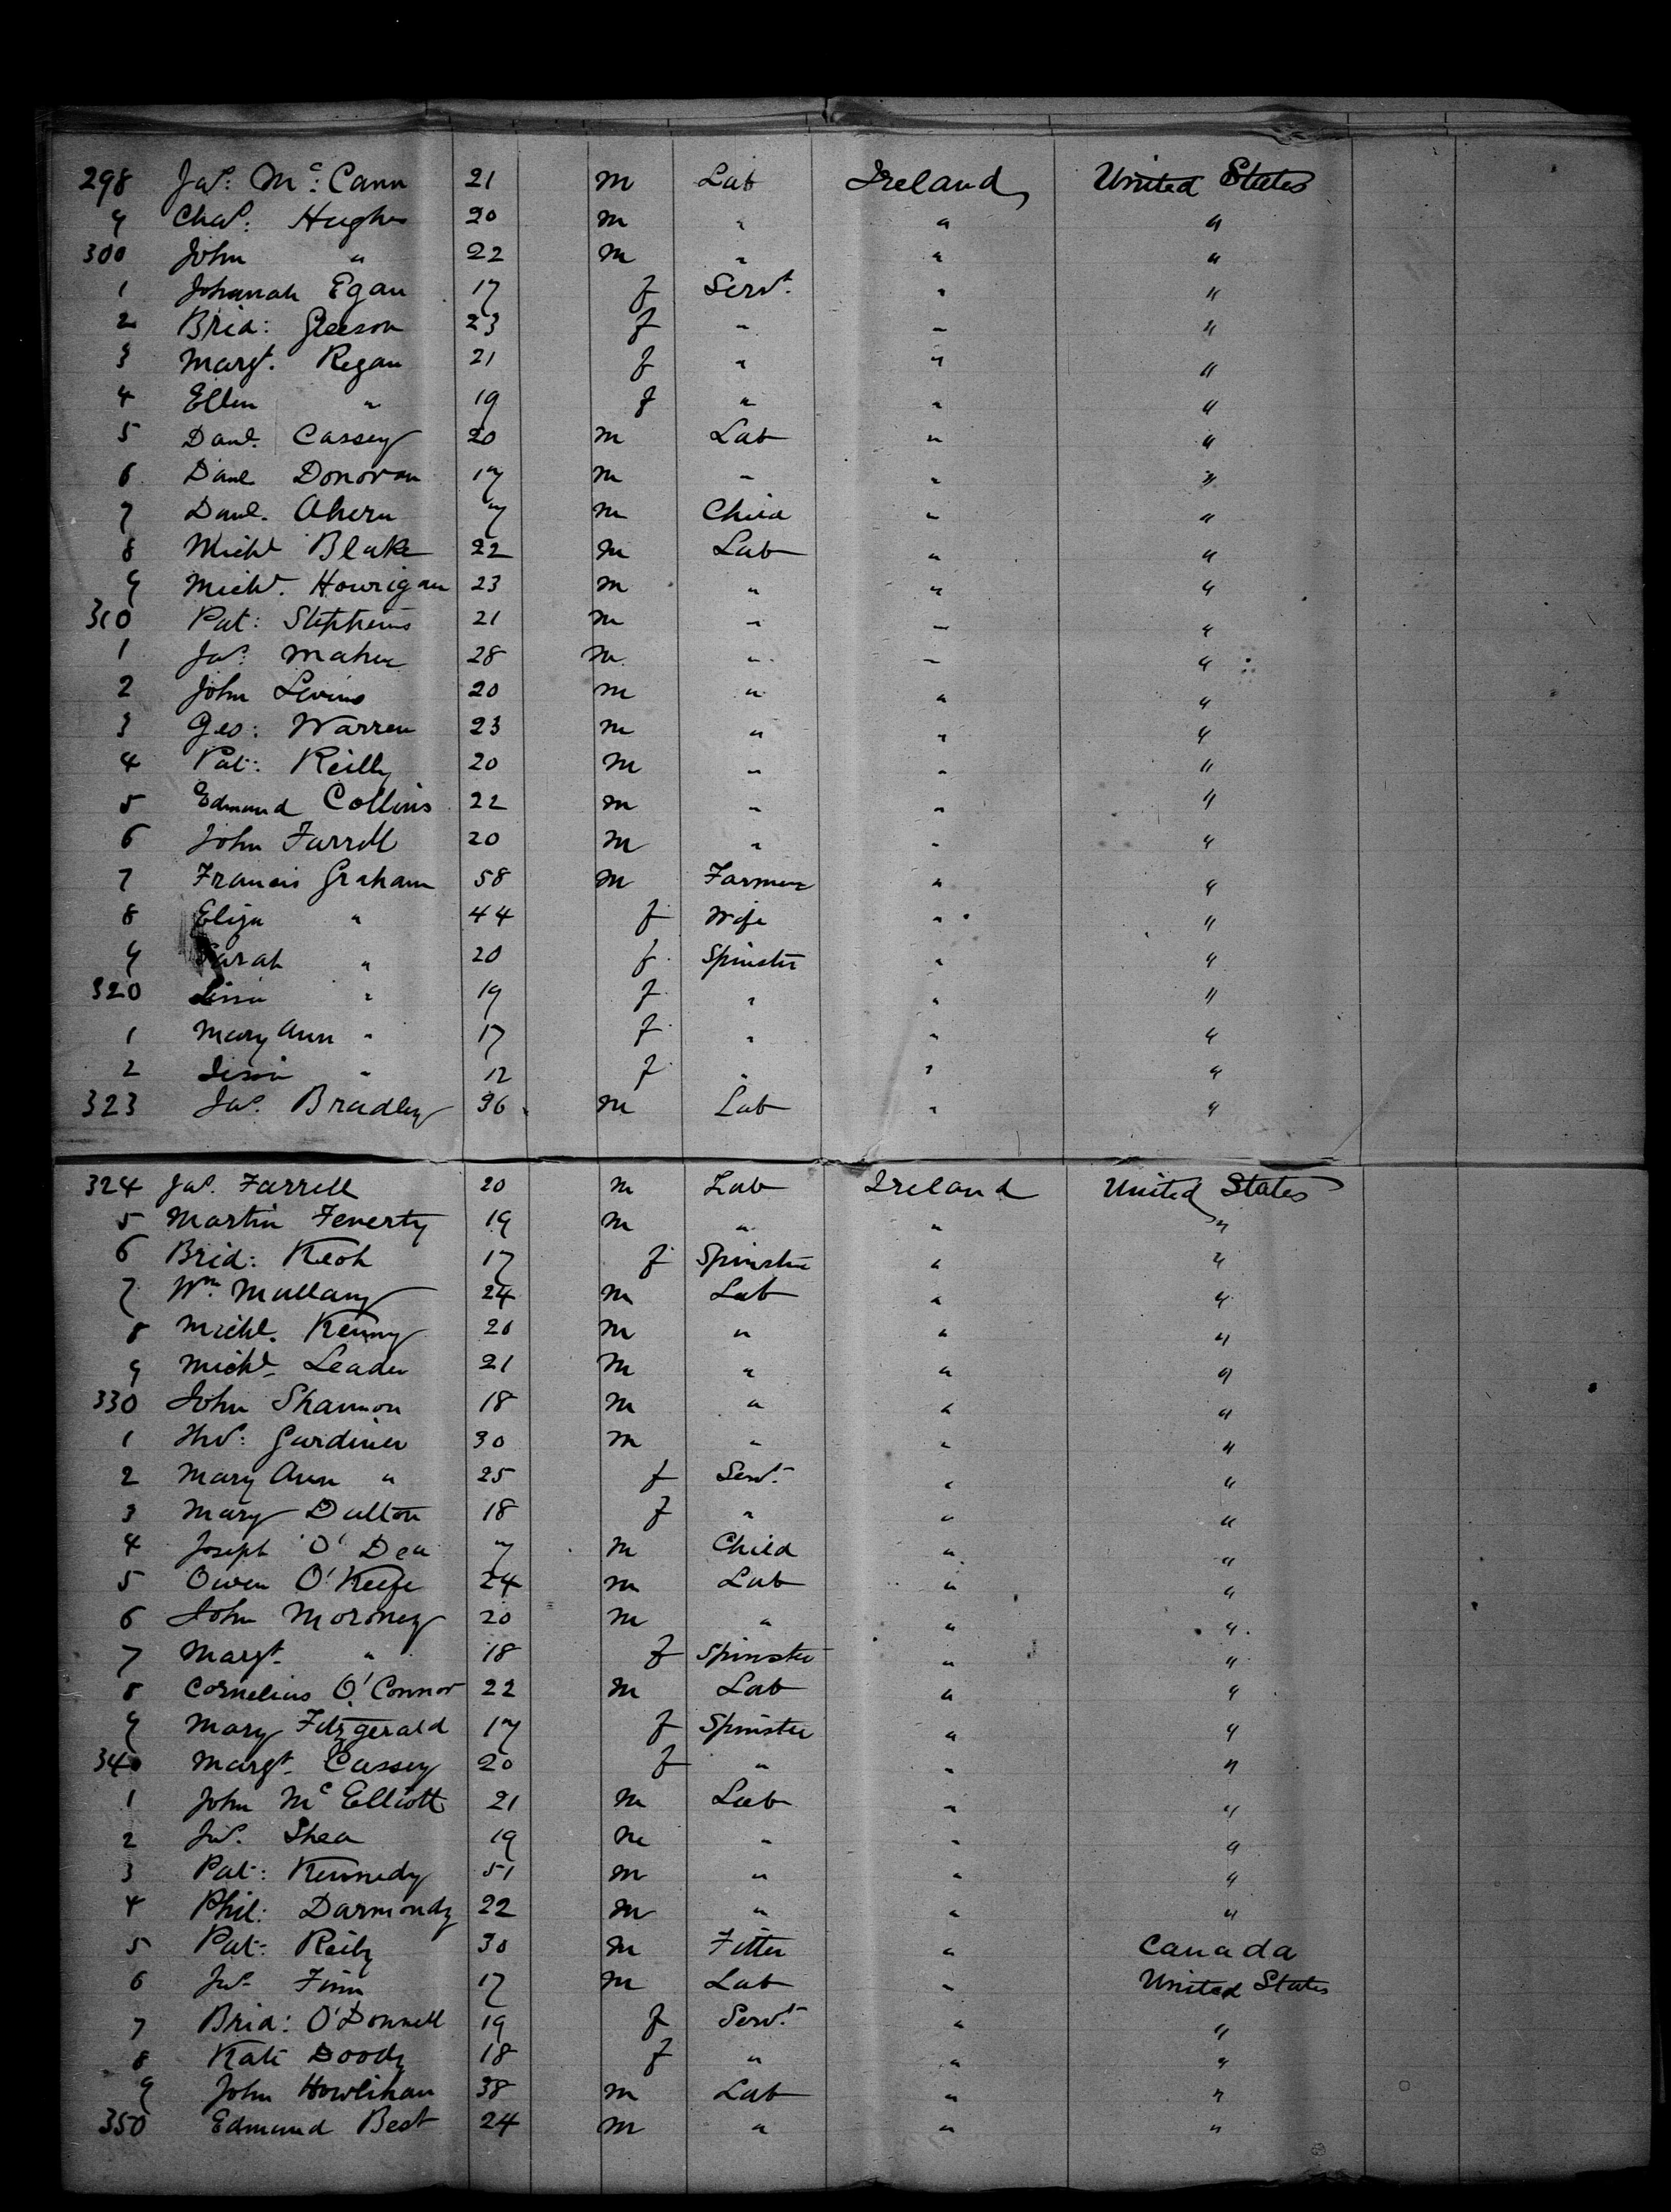 298 Jas: Mc: Cann 21 m Lab Ireland United States
9 Chas: Hughes 20 m " " "
300 John " 22 m " " "
1 Johanah Egan 17 f Servt. " "
2 Brid: Gleeson 23 f " " "
3 Margt. Regan 21 f " " "
4 Ellen " 19 f " " "
5 Danl. Cassey 20 m Lab " "
6 Danl Donovan 17 m " " "
7 Danl. Ahern 7 m Child " "
8 Michl Blake 22 m Lab " "
9 Michl. Hourigan 23 m " " "
310 Pat: Stephens 21 m " " "
1 Jas: Maher 28 m " " "
2 John Levins 20 m " " "
3 Geo: Warren 23 m " " "
4 Pat: Reilly 20 m " " "
5 Edmund Collins 22 m " " "
6 John Farrell 20 m " " "
7 Francis Graham 58 m Farmer " "
8 Eliza " 44 f Wife " "
9 Sarah " 20 f Spinster " "
320 " 19 f " " "
1 Mary Ann " 17 f " " "
2 " 12 f " " "
323 Jas. Bradley 36 m Lab " "
324 Jas. Farrell 20 m Lab Ireland United States
5 Martin Fenerty 19 m " " "
6 Brid: Keoh 17 f Spinster " "
7 Wm. Mullany 24 m Lab " "
8 Michl. Kenny 20 m " " "
9 Michl. Leader 21 m " " "
330 John Shannon 18 m " " "
1 Ths: Gardiner 30 m " " "
2 Mary Ann " 25 f Servt. " "
3 Mary Dalton 18 f " " "
4 Joseph O'Dea 7 m Child " "
5 Owen O'Keefe 24 m Lab " "
6 John Moroney 20 m " " "
7 Margt. " 18 f Spinster " "
8 Cornelius O'Connor 22 m Lab " "
9 Mary Fitzgerald 17 f Spinster " "
340 Margt. Cassey 20 f " " "
1 John Mc Elliott 21 m Lab " "
2 Jas. Shea 19 m " " "
3 Pat: Kennedy 51 m " " "
4 Phil: Darmondy 22 m " " "
5 Pat: Reily 30 m Fitter " Canada
6 Jas. Finn 17 m Lab " United States
7 Brid: O'Donnell 19 f Servt. " "
8 Kate Doody 18 f " " "
9 John Howlihan 38 m Lab " "
350 Edmund Best 24 m " " "